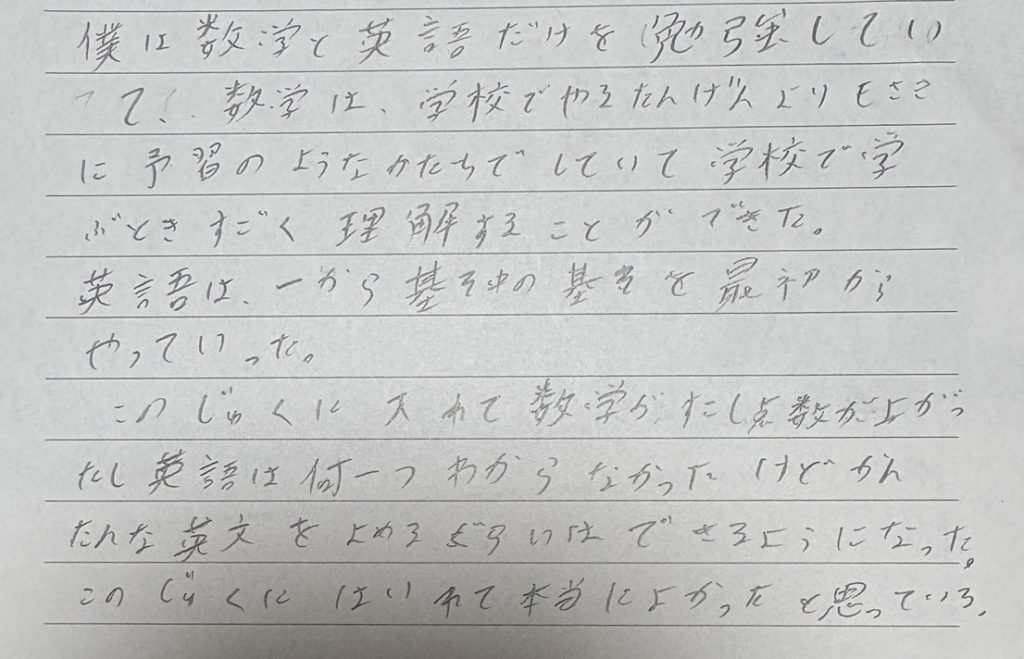 僕は数学と英語だけを勉強してい
て、数学は、学校でやるたんげんよりもさき
に予習のようなかたちでしていて学校で学
ぶときすごく理解することができた。
英語は、一から基礎中の基礎を最初から
やっていった。
このじゅくに入れて数学がすこし点数が上がっ
たし英語は何一つわからなかったけどかん
たんな英文をよめるぐらいはできるようになった。
このじゅくにはいれて本当によかったと思っている。